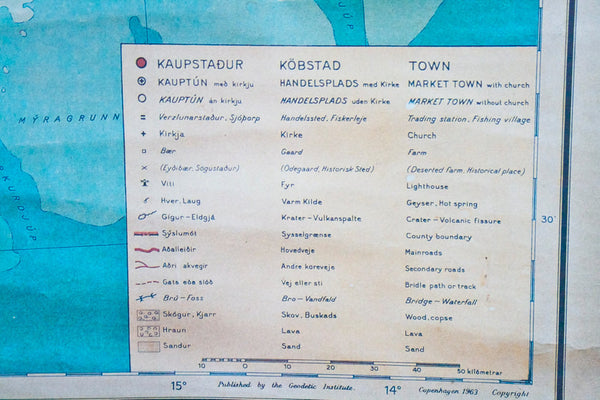 JÚP
KAUPSTAÐUR KÖBSTAD TOWN
KAUPTÚN með kirkju HANDELSPLADS med Kirke MARKET TOWN with church
KAUPTÚN án kirkju HANDELSPLADS uden Kirke MARKET TOWN without church
MÝRAGRUNN
Verzlunarstaður, Sjóþorp Handelssted, Fiskerleje Trading station, Fishing village
Kirkja Kirke Church
Bær Gaard Farm
(Eyðibær, Sögustaður) (Ödegaard, Historisk Sted) (Deserted Farm, Historical place)
Viti Fyr Lighthouse
Hver, Laug Varm Kilde Geyser, Hot spring
Gígur - Eldgjá Krater - Vulkanspalte Crater - Volcanic fissure
30'
Sýslumót Sysselgrænse County boundary
Aðalleiðir Hovedveje Mainroads
Aðri akvegir Andre köreveje Secondary roads
Gata eða slóð Vej eller sti Bridle path or track
Brú - Foss Bro - Vandfald Bridge - Waterfall
Skógur, Kjarr Skov, Buskads Wood, copse
Hraun Lava Lava
Sandur Sand Sand
10 0 10 20 30 40 50 kílómetrar
15° Published by the Geodetic Institute. 14° Copenhagen 1963 Copyright